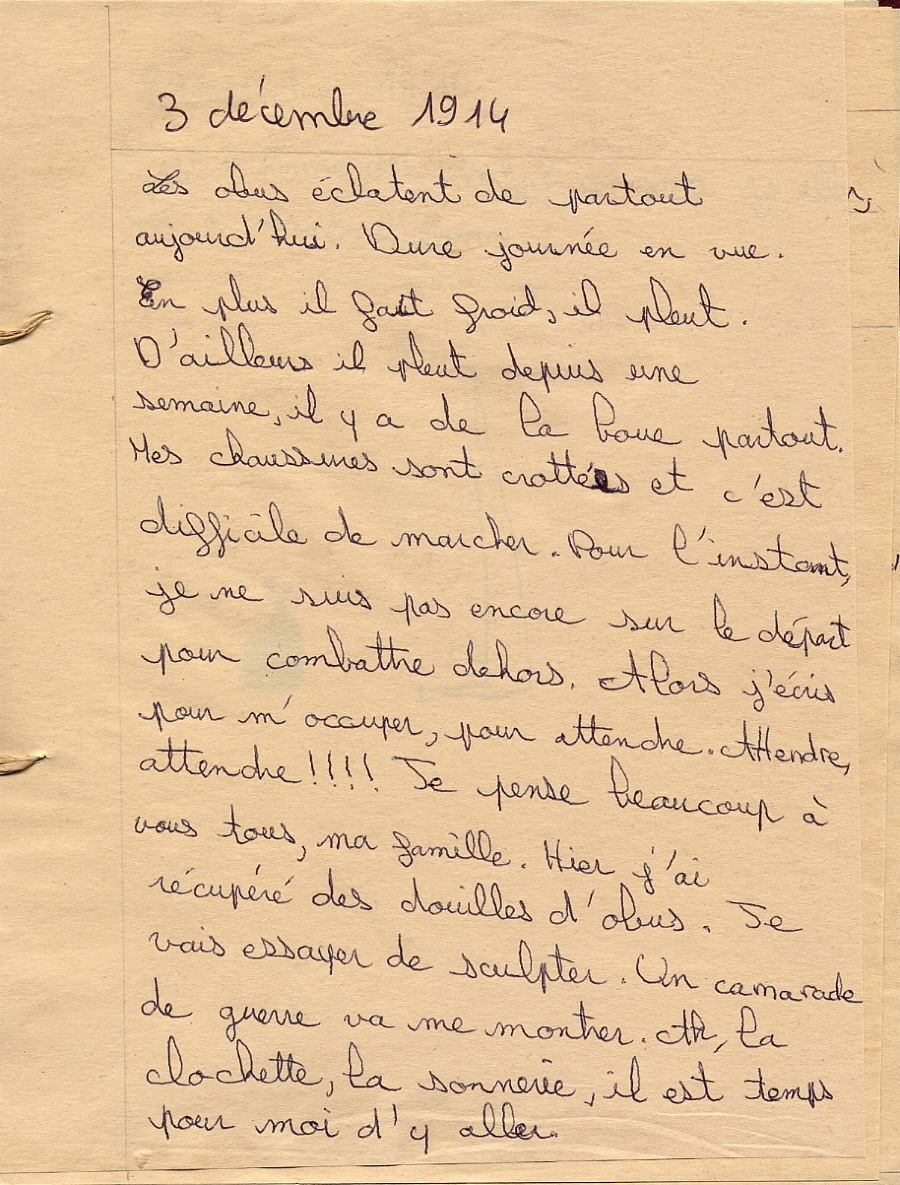 3 décembre 1914
Les obus éclatent de partout
aujourd'hui. Dure journée en vue.
En plus il fait froid, il pleut.
D'ailleurs il pleut depuis une
semaine, il y a de la boue partout.
Mes chaussures sont crottées et c'est
difficile de marcher. Pour l'instant,
je ne suis pas encore sur le départ
pour combattre dehors. Alors j'écris
pour m'occuper, pour attendre. Attendre,
attendre !!!! Je pense beaucoup à
vous tous, ma famille. Hier j'ai
récupéré des douilles d'obus. Je
vais essayer de sculpter. Un camarade
de guerre va me montrer. Ah, la
clochette, la sonnerie, il est temps
pour moi d'y aller.